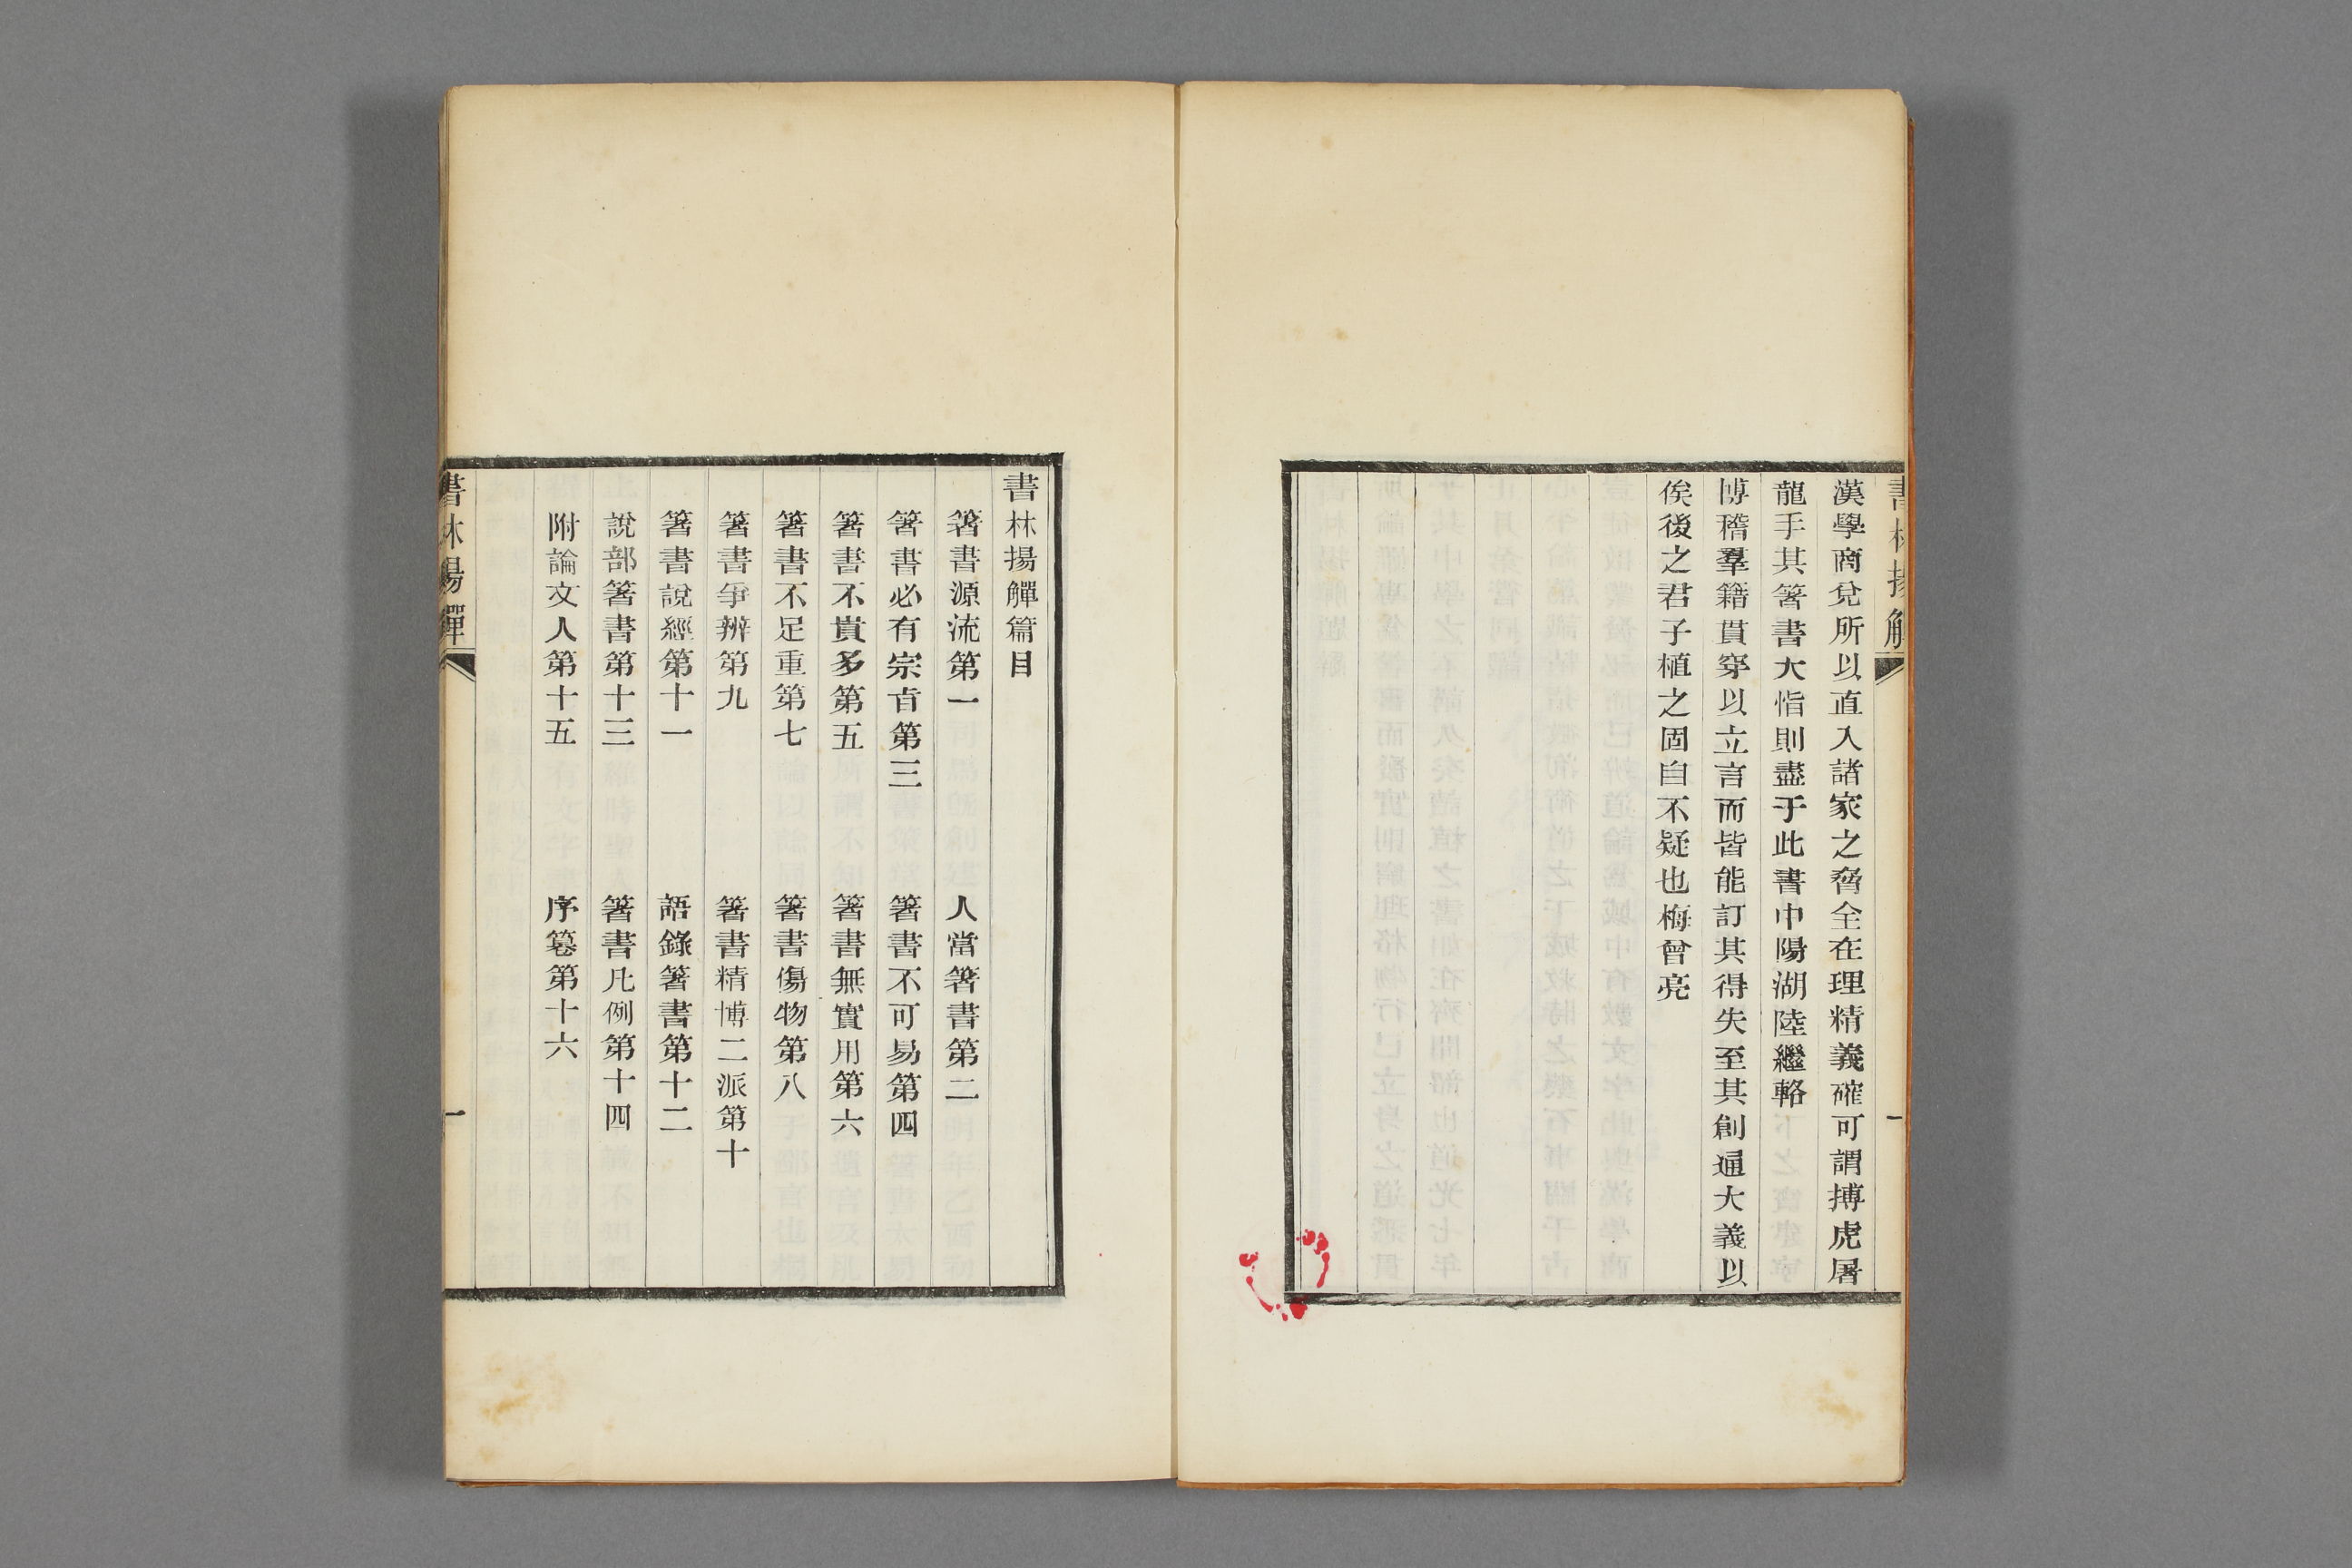 漢學商兌所以直入諸家之脅全在理精義確可謂搏虎屠
龍手其箸書大恉則盡于此書中陽湖陸繼輅
博稽羣籍貫穿以立言而皆能訂其得失至其創通大義以
俟後之君子植之固自不疑也梅曾亮
書林揚觶篇目
箸書源流第一 人當箸書第二
箸書必有宗恉第三 箸書不可易第四
箸書不貴多第五 箸書無實用第六
箸書不足重第七 箸書傷物第八
箸書爭辨第九 箸書精博二派第十
箸書說經第十一 語錄箸書第十二
說部箸書第十三 箸書凡例第十四
附論文人第十五 序篹第十六
書林揚觶
一